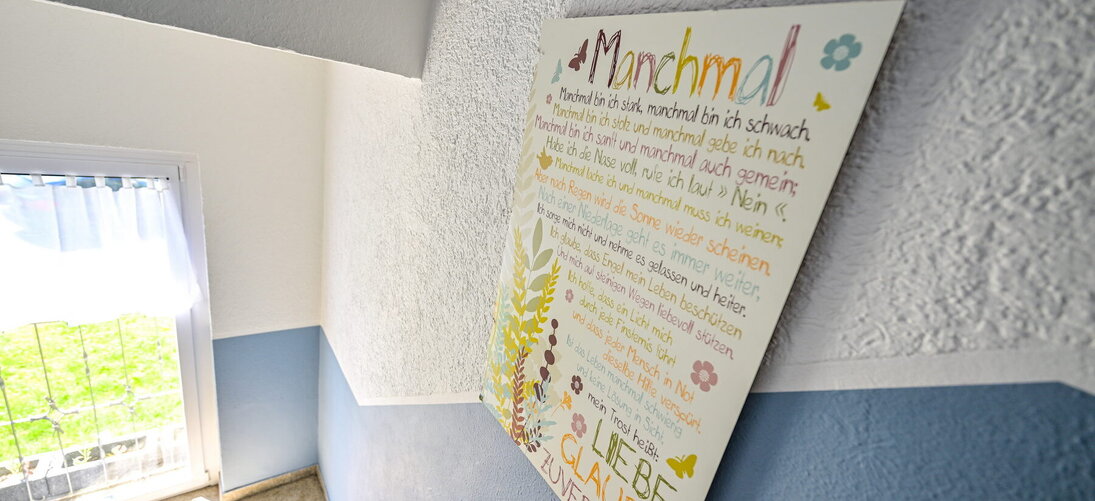 Manchmal
Manchmal bin ich stark, manchmal bin ich schwach.
Manchmal bin ich stolz und manchmal gebe ich nach.
Manchmal bin ich sanft und manchmal auch gemein;
Habe ich die Nase voll, rufe ich laut » Nein «.
Manchmal lache ich und manchmal muss ich weinen;
Aber nach Regen wird die Sonne wieder scheinen.
Nach einer Niederlage geht es immer weiter;
Ich sorge mich nicht und nehme es gelassen und heiter.
Ich glaube, dass Engel mein Leben beschützen
Und mich auf steinigen Wegen liebevoll stützen.
Ich hoffe, dass ein Licht mich
durch jede Finsternis führt
und dass jeder Mensch in Not
dieselbe Hilfe verspürt.
Ist das Leben manchmal schwierig
und keine Lösung in Sicht,
mein Trost heißt:
LIEBE
GLAU
ZUVER